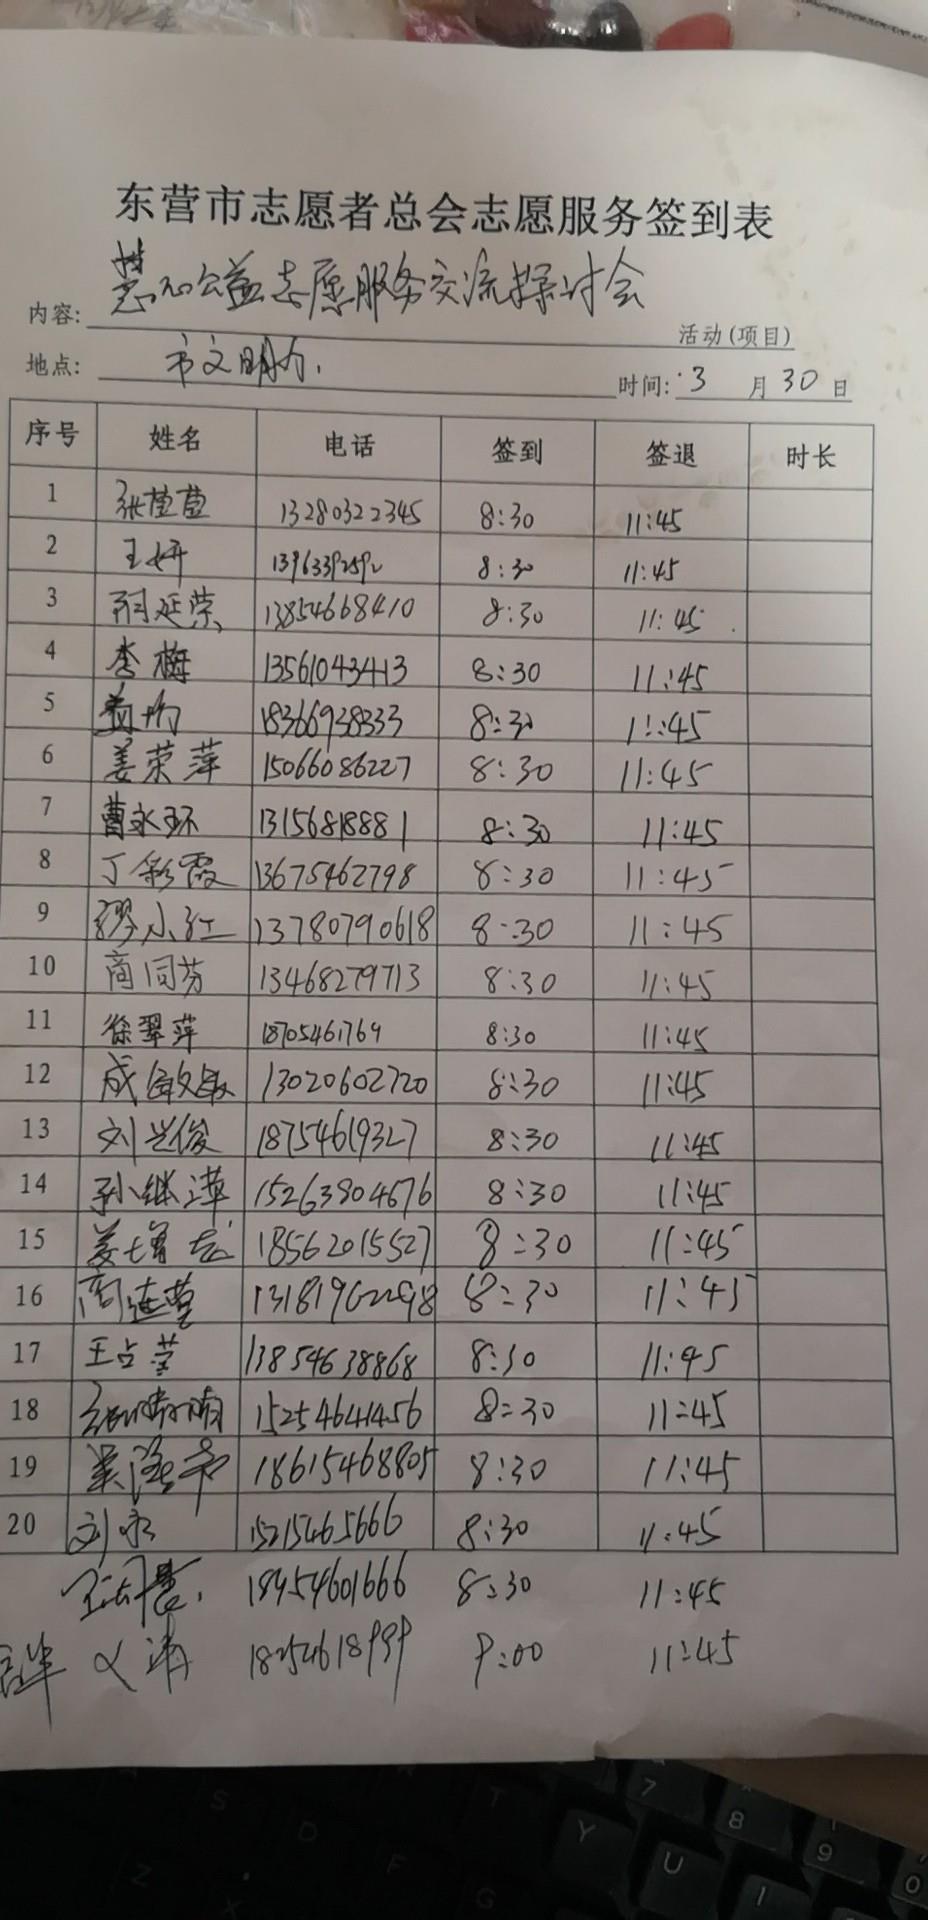 东营市志愿者总会志愿服务签到表
内容: 慧心公益志愿服务交流探讨会 活动(项目)
地点: 市文明办. 时间: 3 月 30 日
序号 姓名 电话 签到 签退 时长
1 张莹莹 13280322345 8:30 11:45
2 王妍 8:30 11:45
3 延荣 13854668410 8:30 11:45
4 李梅 13561043413 8:30 11:45
5 18366938333 8:30 11:45
6 姜荣萍 15066086227 8:30 11:45
7 曹永环 13156818881 8:30 11:45
8 丁彩霞 13675462798 8:30 11:45
9 缪小红 13780790618 8:30 11:45
10 商同芬 13468279713 8:30 11:45
11 徐翠萍 18705461769 8:30 11:45
12 成敏敏 13020602720 8:30 11:45
13 刘兰俊 18754619327 8:30 11:45
14 孙继萍 15263804676 8:30 11:45
15 姜增志 18562015527 8:30 11:45
16 商莲莹 8:30 11:45
17 王占莹 13854638868 8:30 11:45
18 张晴晴 15254641456 8:30 11:45
19 18615468805 8:30 11:45
20 刘永 15215465666 8:30 11:45
18954601666 8:30 11:45
9:00 11:45
S D F T Y U I 7 8 9 0 Z X G